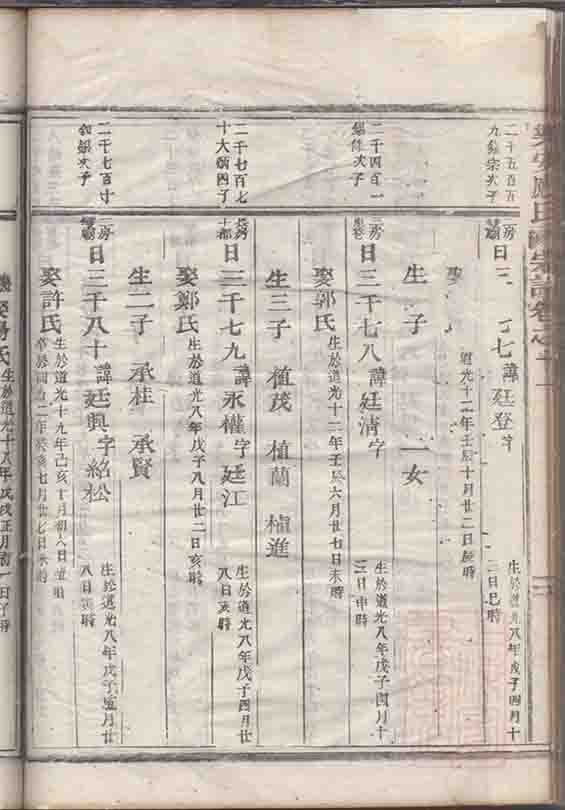 氏宗譜卷之
二千五百五
九 宗次子
房
日三 七 諱 廷登 字
生於道光八年戊子四月十
三日巳時
娶
道光十二年壬辰十月廿二日辰時
生 子 一女
二千四百一
次子
二房
日三千七八 諱 廷清 字
生於道光八年戊子四月十
三日申時
娶郭氏
生於道光十二年壬辰六月廿七日未時
生三子 植茂 植蘭 植進
二千七百七
十大 四子
長房
十都
日三千七九 諱 永權 字 廷江
生於道光八年戊子四月廿
八日亥時
娶鄭氏
生於道光八年戊子八月廿二日亥時
生二子 承桂 承賢
二千七百
次子
二房
日三千八十 諱 廷興 字 紹松
生於道光八年戊子 月廿
八日寅時
娶許氏
生於道光十九年己亥十月初八日 時
卒於同治二年癸亥七月廿七日 時
娶 氏
生於道光十八年戊戌正月 一日子時